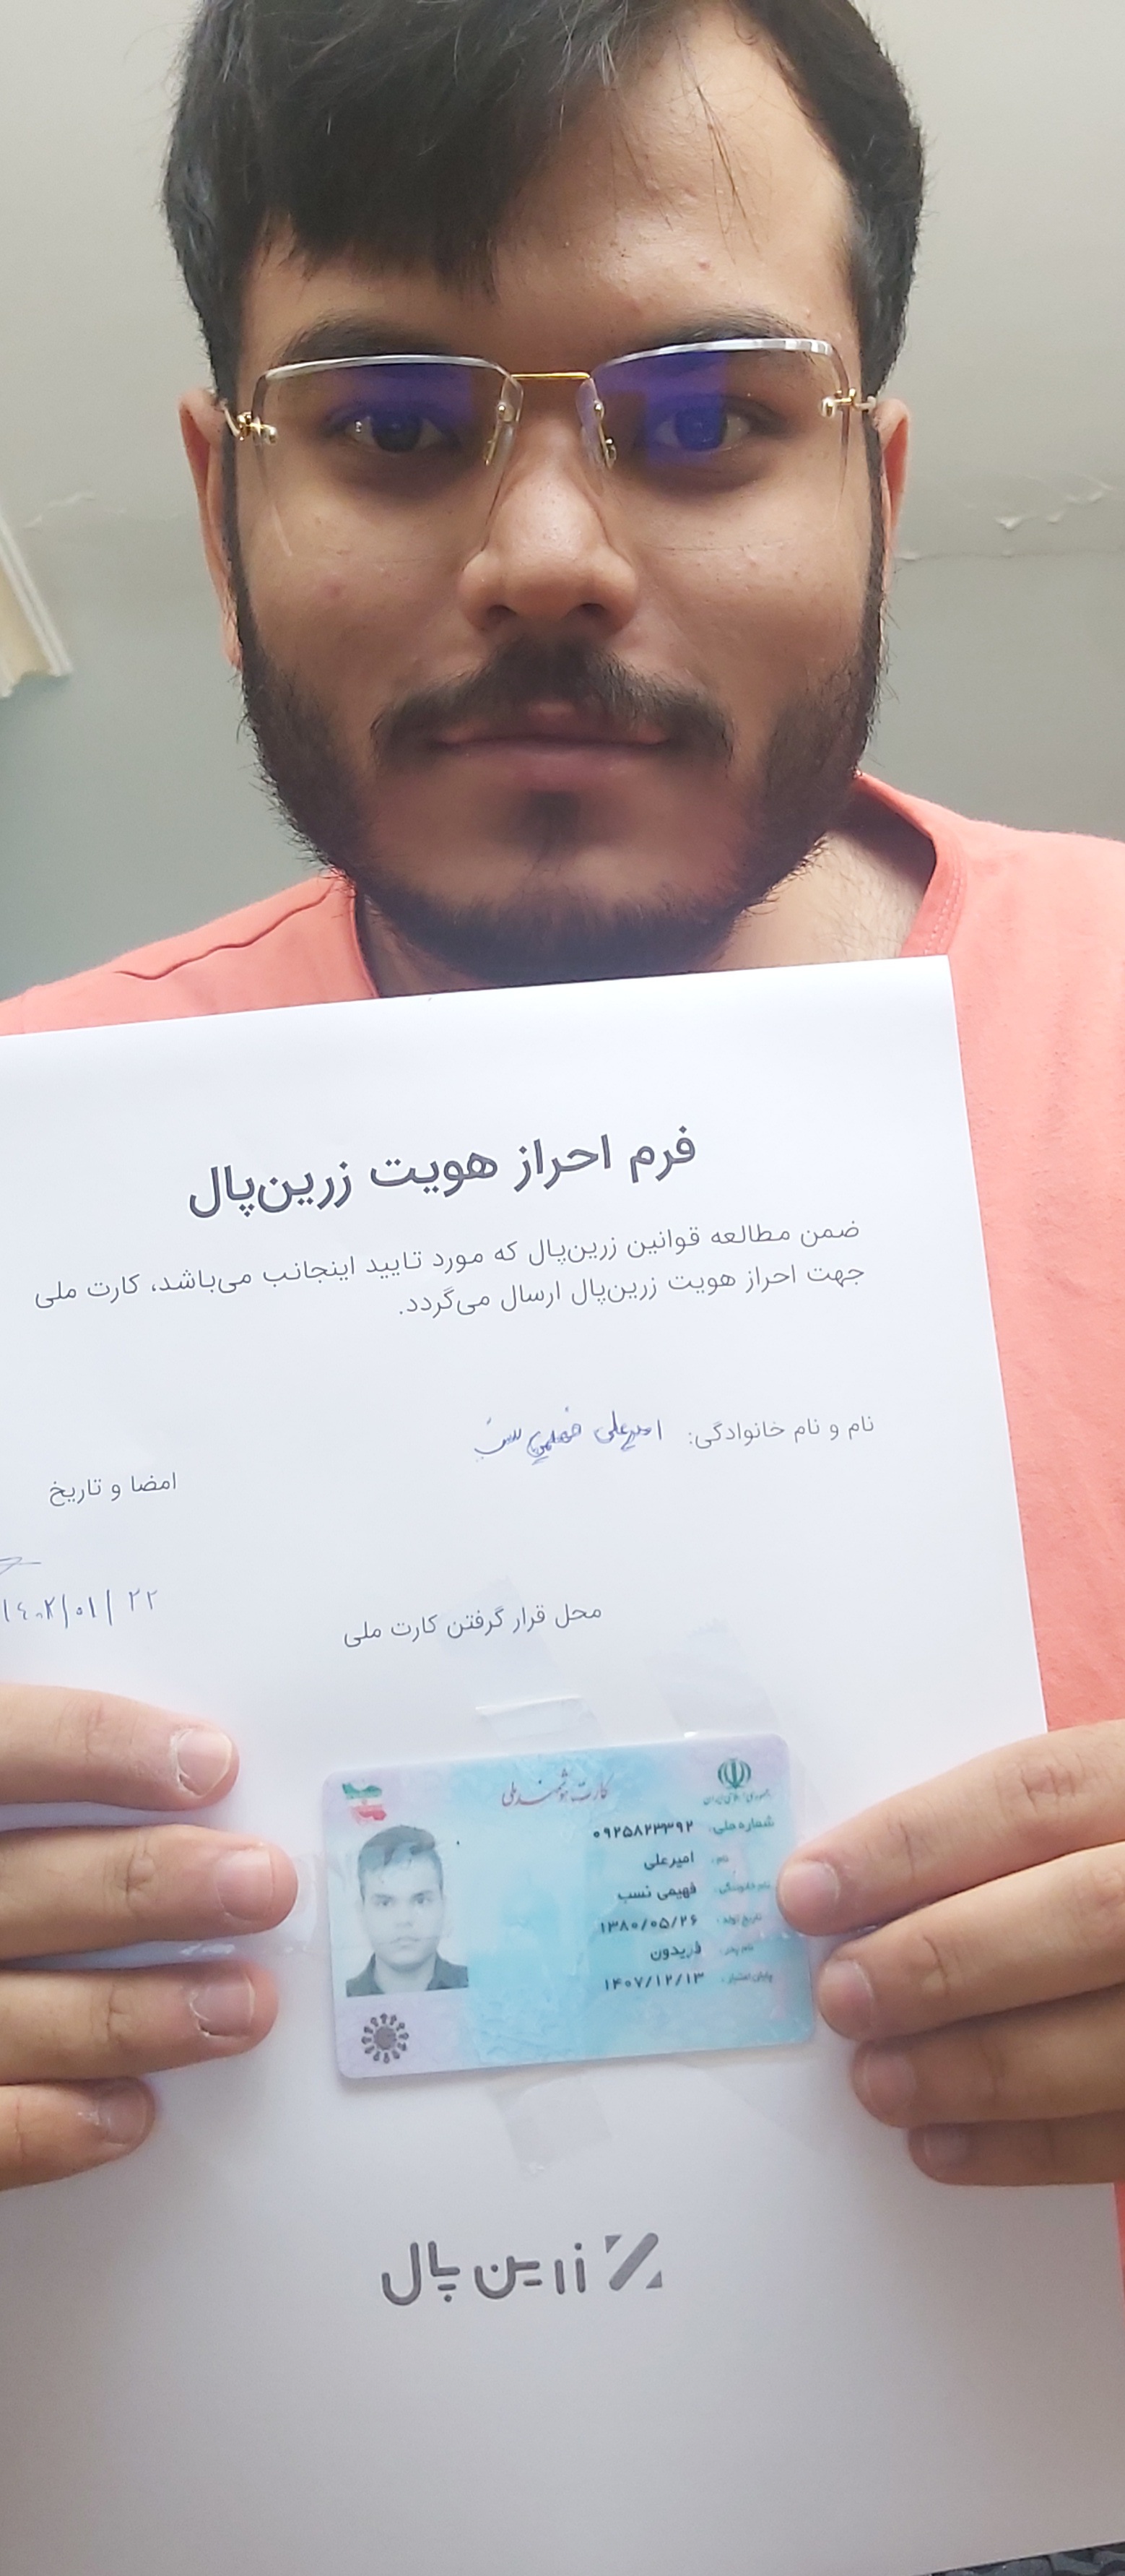 فرم احراز هویت زرین‌پال
ضمن مطالعه قوانین زرین‌پال که مورد تایید اینجانب می‌باشد، کارت ملی
جهت احراز هویت زرین‌پال ارسال می‌گردد.
نام و نام خانوادگی: امیرعلی فهیمی نسب
امضا و تاریخ
۱۴۰۲/۰۱/۲۲
محل قرار گرفتن کارت ملی
کارت هوشمند ملی
جمهوری اسلامی ایران
شماره ملی: ۰۹۲۵۸۲۳۳۹۲
نام: امیرعلی
نام خانوادگی: فهیمی نسب
تاریخ تولد: ۱۳۸۰/۰۵/۲۶
نام پدر: فریدون
پایان اعتبار: ۱۴۰۷/۱۲/۱۳
زرین پال